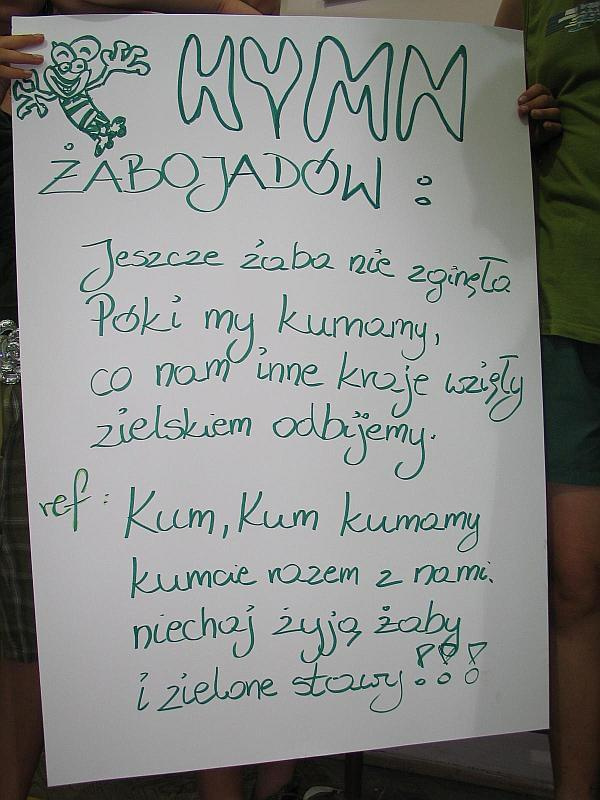 HYMN
ŻABOJADÓW:
Jeszcze żaba nie zginęła
Póki my kumamy,
co nam inne kraje wzięły
zielskiem odbijemy.
ref: Kum, Kum kumamy
kumcie razem z nami.
niechaj żyją żaby
i zielone stawy!!!